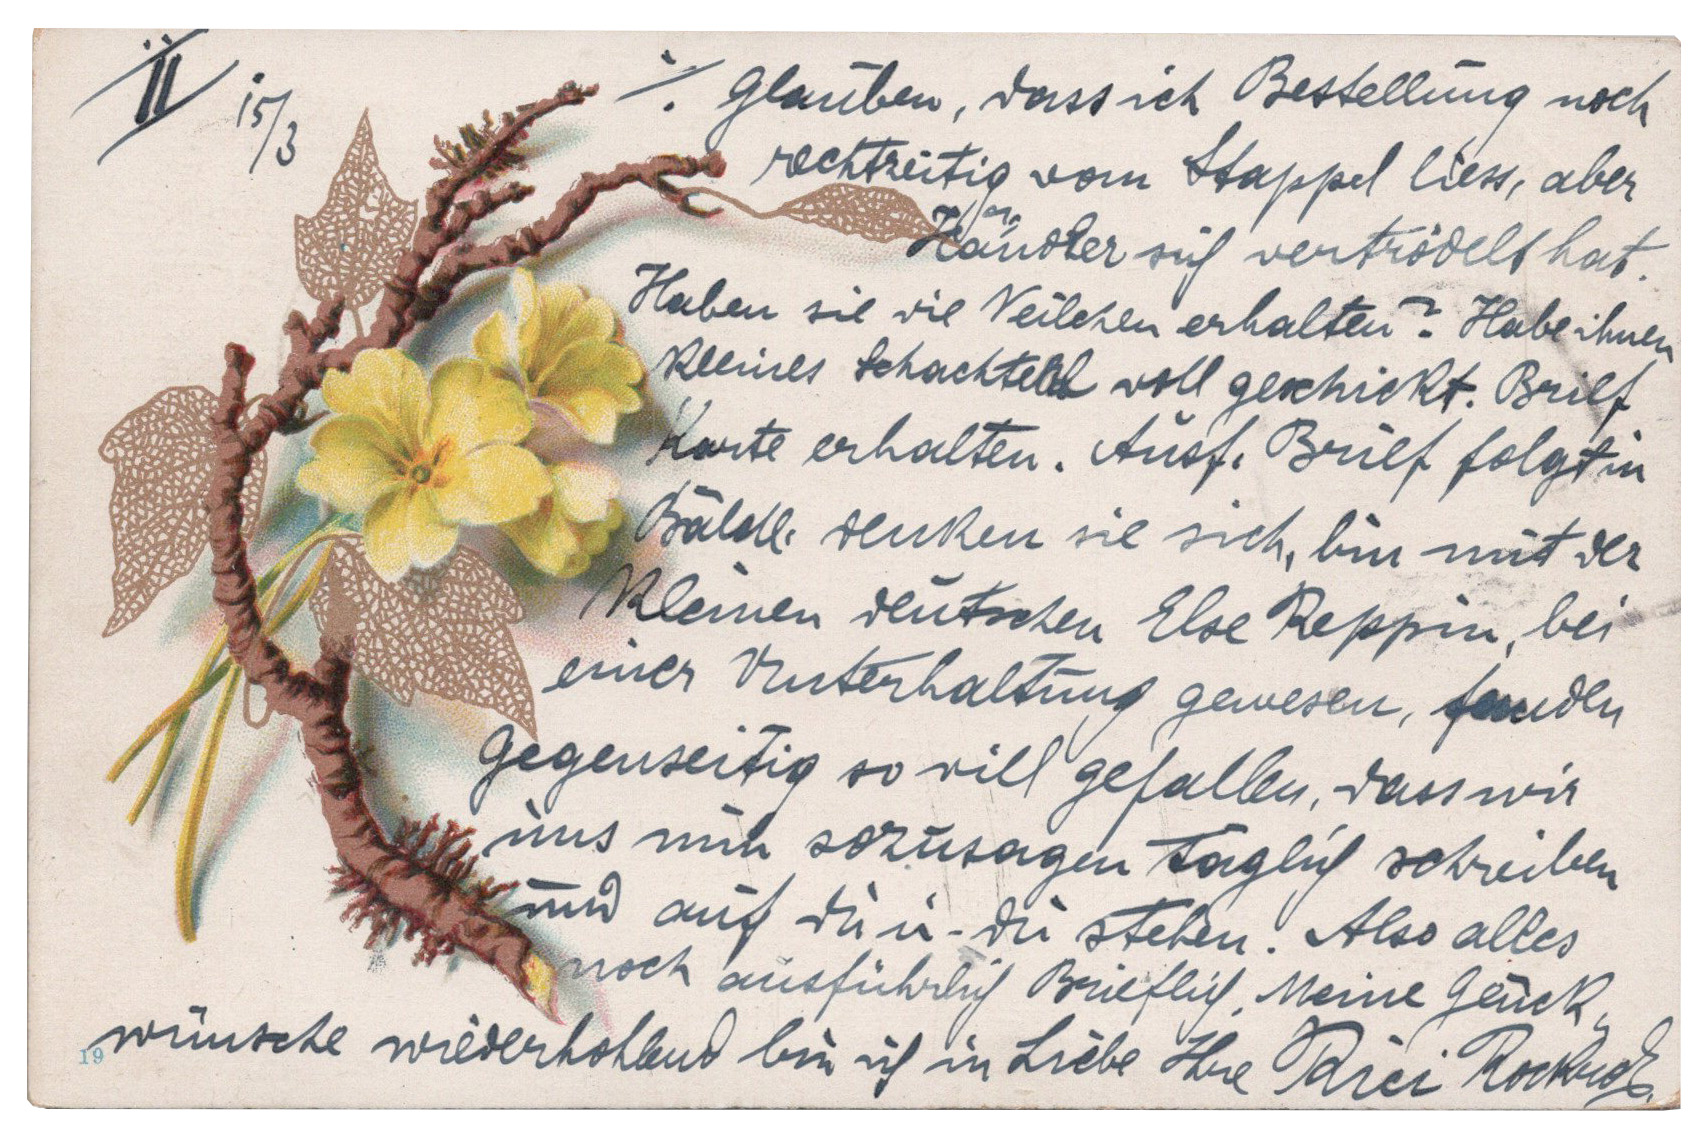 II 15/3
./. Glauben, dass ich Bestellung noch
rechtzeitig vom Stappel liess, aber
Händler sich vertrödelt hat.
Haben sie die Veilchen erhalten? Habe ihnen
kleines Schachtelel voll geschickt. Brief
Karte erhalten. Ausf. Brief folgt in
Bälde. denken sie sich, bin mit der
Kleinen deutschen Else Reppin, bei
einer Unterhaltung gewesen, fanden
gegenseitig so vill gefallen, dass wir
uns nun sozusagen täglich schreiben
und auf du u-du stehen. Also alles
noch ausführlich Brieflich. Meine Glück„
wünsche wiederhohlend bin ich in Liebe Ihre
19